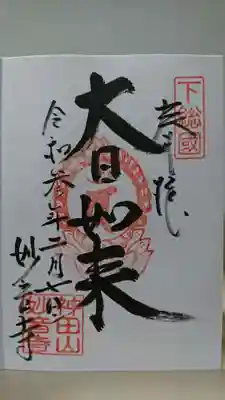 奉拝
下総國
大日如来
令和参年二月七日
妙音寺
神田山
妙音寺